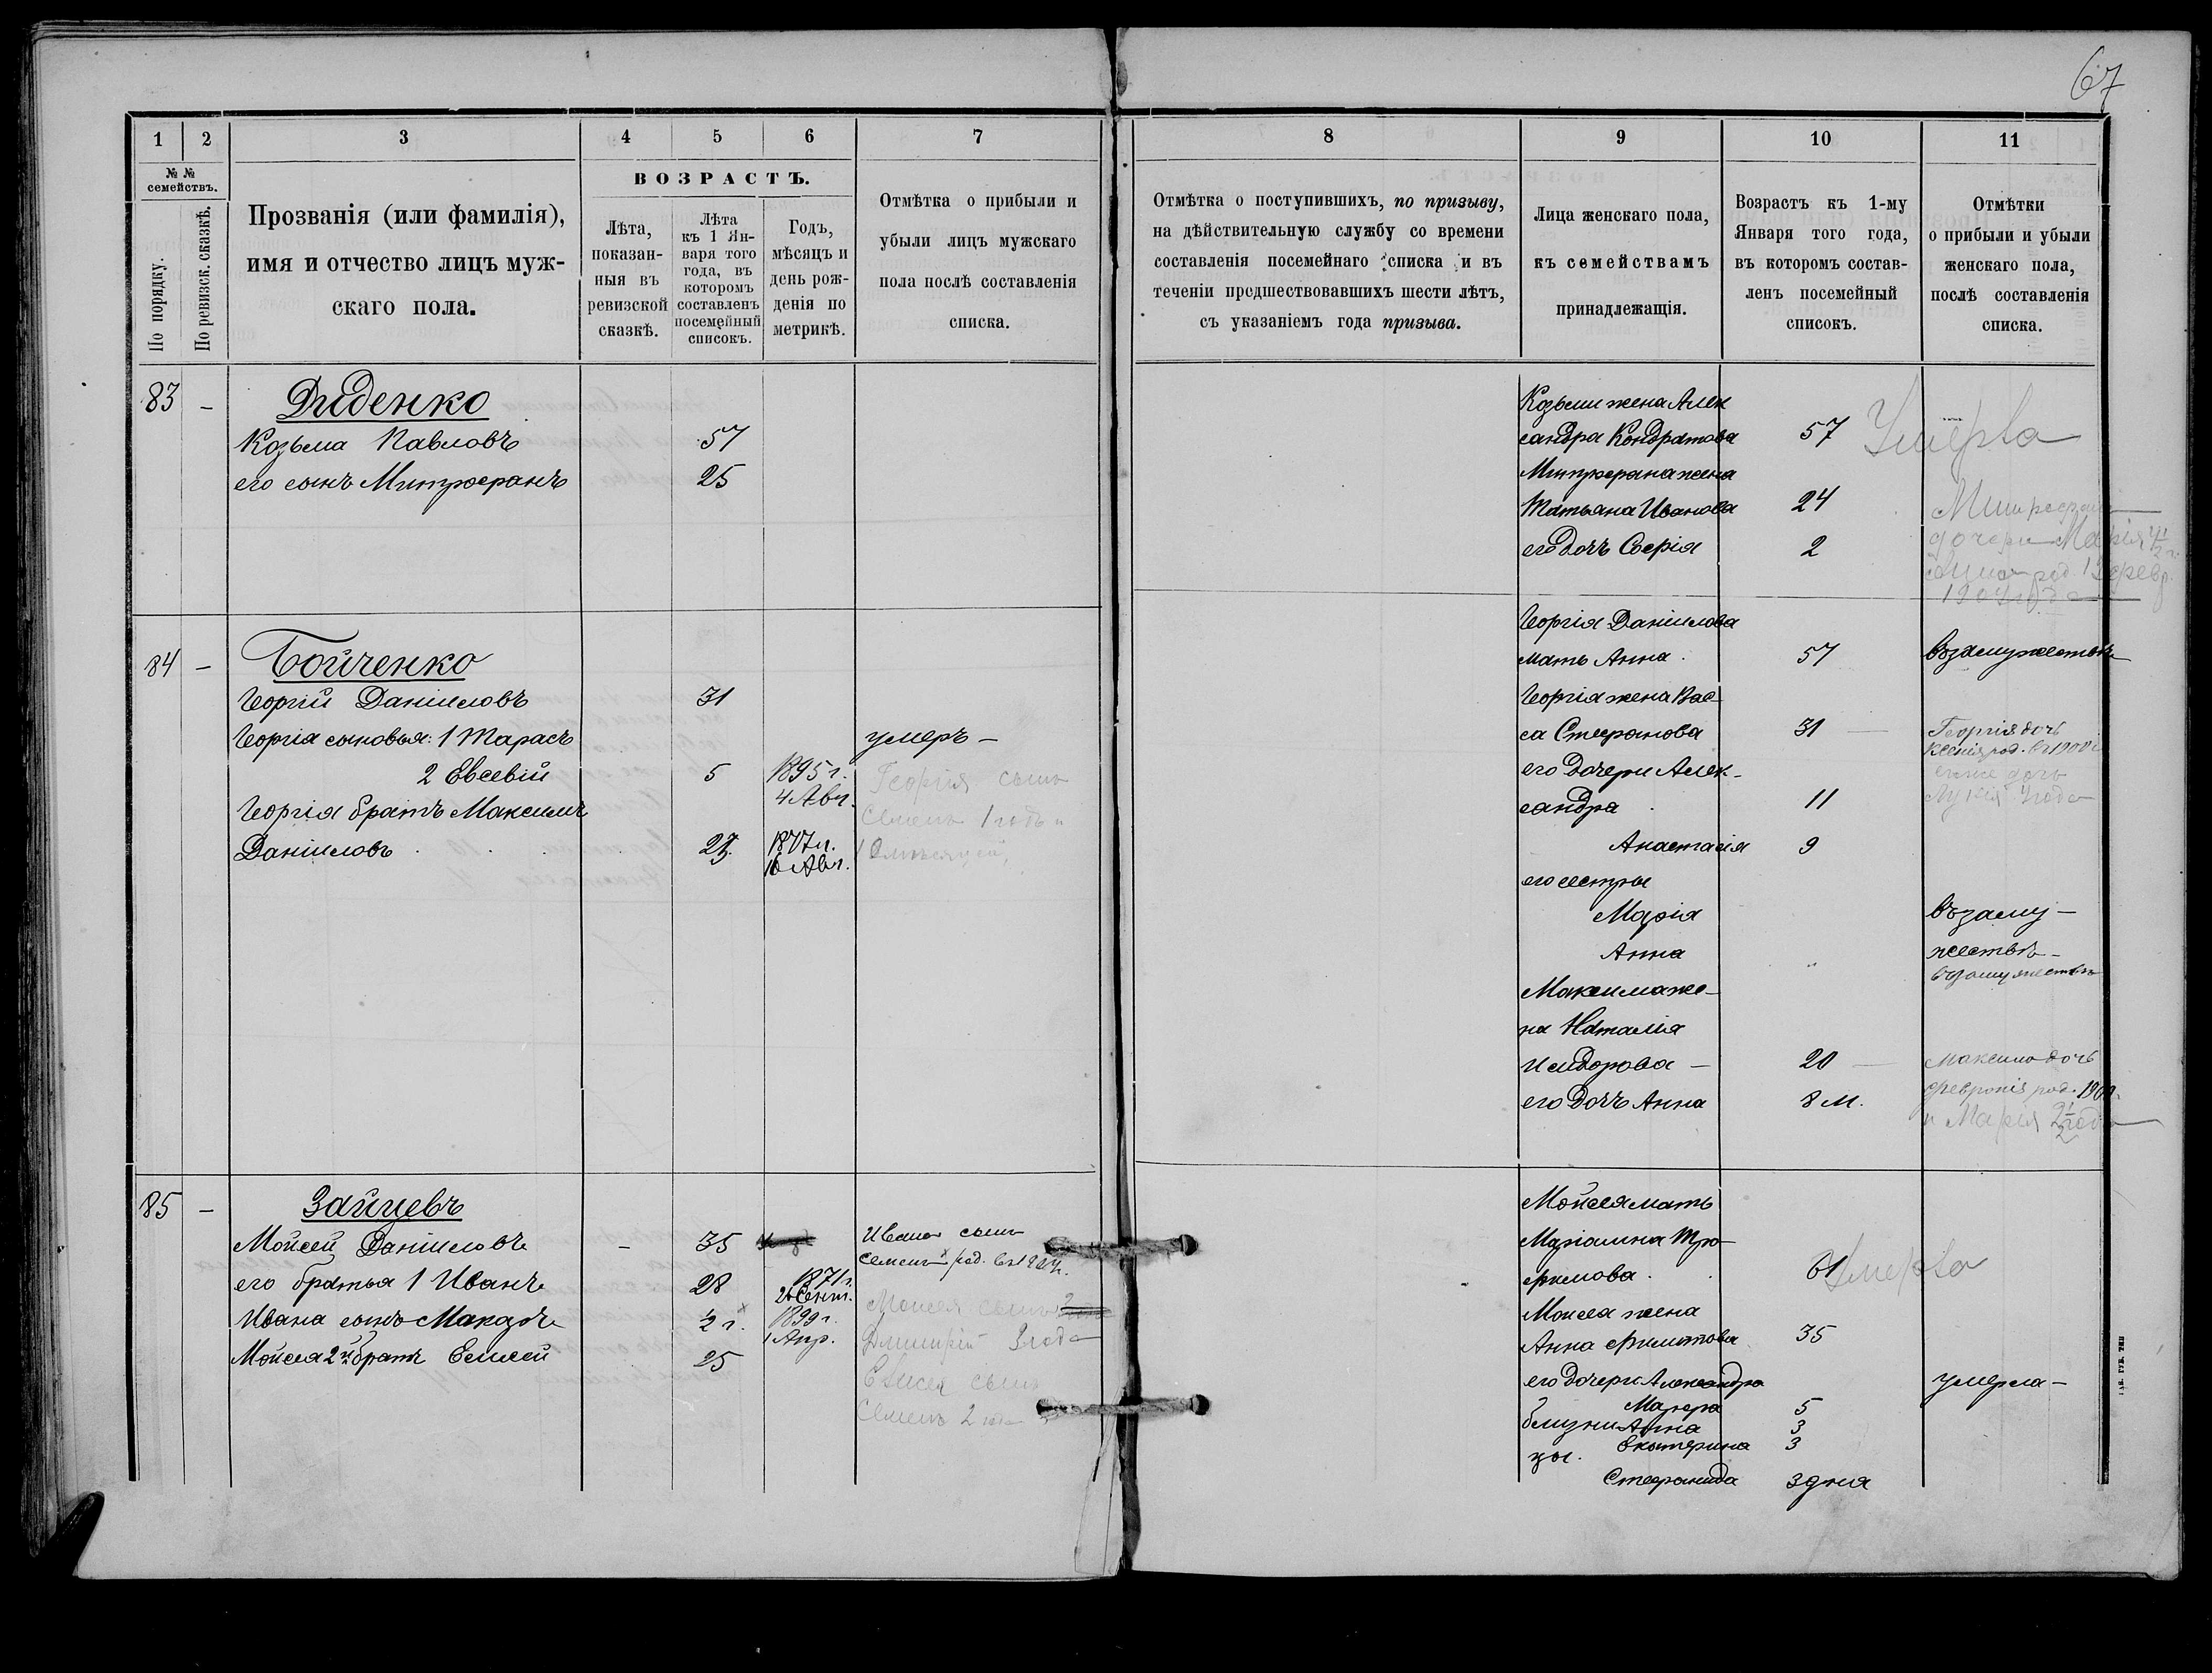 67
1 2 3 4 5 6 7
№ № семействъ.
По порядку.
По ревизск. сказкѣ.
Прозванія (или фамилія),
имя и отчество лицъ муж-
скаго пола.
ВОЗРАСТЪ.
Лѣта,
показан-
ныя въ
ревизской
сказкѣ.
Лѣта
къ 1 Ян-
варя того
года, въ
которомъ
составленъ
посемейный
списокъ.
Годъ,
мѣсяцъ и
день рож-
денія по
метрикѣ.
Отмѣтка о прибыли и
убыли лицъ мужскаго
пола послѣ составленія
списка.
83 - Диденко
Козьма Павловъ 57
его сынъ Митрофанъ 25
84 - Бойченко
Георгій Даніиловъ 31
Георгія сыновья: 1 Тарасъ умеръ -
2 Евсевій 5 1895 г.
4 Авг.
Георгія сынъ
Семенъ 1 годъ и
Георгія братъ Максимъ
Даніиловъ 1877 г.
16 Авг.
85 - Зайцевъ
Мойсей Даніиловъ - 35
Ивана сынъ
Семенъ род. въ
его братья 1 Иванъ 28 1871 г.
Сент.
Ивана сынъ Макаръ ½ г. 1899 г.
1 Апр.
Моисея сынъ
Дмитрій 3 года
Мойсея 2й братъ Елисей 25
Елисея сынъ
Семенъ 2 года
8 9 10 11
Отмѣтка о поступившихъ, по призыву,
на дѣйствительную службу со времени
составленія посемейнаго списка и въ
теченіи предшествовавшихъ шести лѣтъ,
съ указаніемъ года призыва.
Лица женскаго пола,
къ семействамъ
принадлежащія.
Возрастъ къ 1-му
Января того года,
въ которомъ состав-
ленъ посемейный
списокъ.
Отмѣтки
о прибыли и убыли
женскаго пола,
послѣ составленія
списка.
Козьмы жена Алек
сандра Кондратова 57 Умерла
Митрофана жена
Татьяна Иванова 24 Митрофана
его дочь Софія 2 дочери Марія
род. 13 февр.
1904 года
Георгія Даніилова
мать Анна. 57 въ замужествѣ
Георгія жена Вас
са Стефанова 31 Георгія дочь
Ксенія род. въ 1900 г.
его дочери Алек-
сандра 11
Анастасія 9
его сестры
Марія въ заму-
Анна жествѣ -
въ замужествѣ
Максима же-
на Наталія
Исидорова - 20 Максима дочь
Февронія род.
его дочь Анна 8 м.
и Марія 2½ года
Мойсея мать
Маріамна Тро-
фимова. 61 Умерла
Моисея жена
Анна Филатова 35
его дочери Александра умерла -
Марфа 5
близне Анна 3
цы. Екатерина 3
Стефанида 3 дня